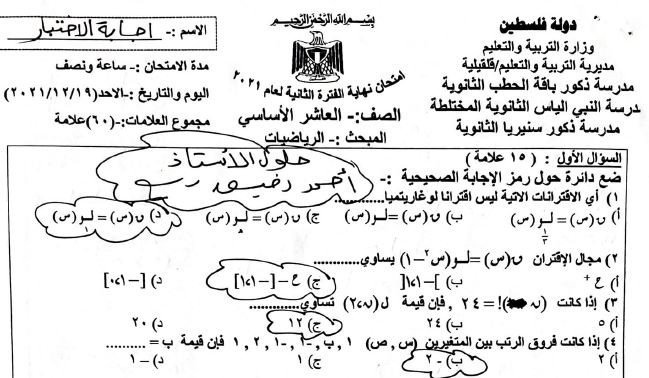 دولة فلسطين
وزارة التربية والتعليم
مديرية التربية والتعليم/قلقيلية
مدرسة ذكور باقة الحطب الثانوية
مدرسة النبي الياس الثانوية المختلطة
مدرسة ذكور سنيريا الثانوية
بسم الله الرحمن الرحيم
امتحان نهاية الفترة الثانية لعام ٢٠٢١
الصف:- العاشر الأساسي
المبحث :- الرياضيات
الاسم :- اجابة الاختبار
مدة الامتحان :- ساعة ونصف
اليوم والتاريخ :-الاحد(٢٠٢١/١٢/١٩)
مجموع العلامات:-(٦٠)علامة
السؤال الأول : ( ١٥ علامة )
حلول الأستاذ
ضع دائرة حول رمز الإجابة الصحيحة :-
أحمد
١) أي الاقترانات الاتية ليس اقترانا لوغاريتميا............
أ) ن(س) =لـو(س) ب) ن(س)=لـو(س) ج) ن(س) =لـو(س) د) ن(س)=لـو(س)
٢) مجال الإقتران ن(س) =لـو(س٢-١) يساوي............
أ) ح+ ب) ]-١،١[ ج) ح-[-١،١] د) [-١،٠]
٣) إذا كانت (ن)!= ٢٤ ، فإن قيمة ل(ن،٢) تساوي............
أ) ٥ ب) ٢٤ ج) ١٢ د) ٢٠
٤) إذا كانت فروق الرتب بين المتغيرين (س , ص) ١ , ب , -١ , -١ , ٢ , ١ فإن قيمة ب= ..........
أ) ٢ ب) -٢ ج) ١ د) -١